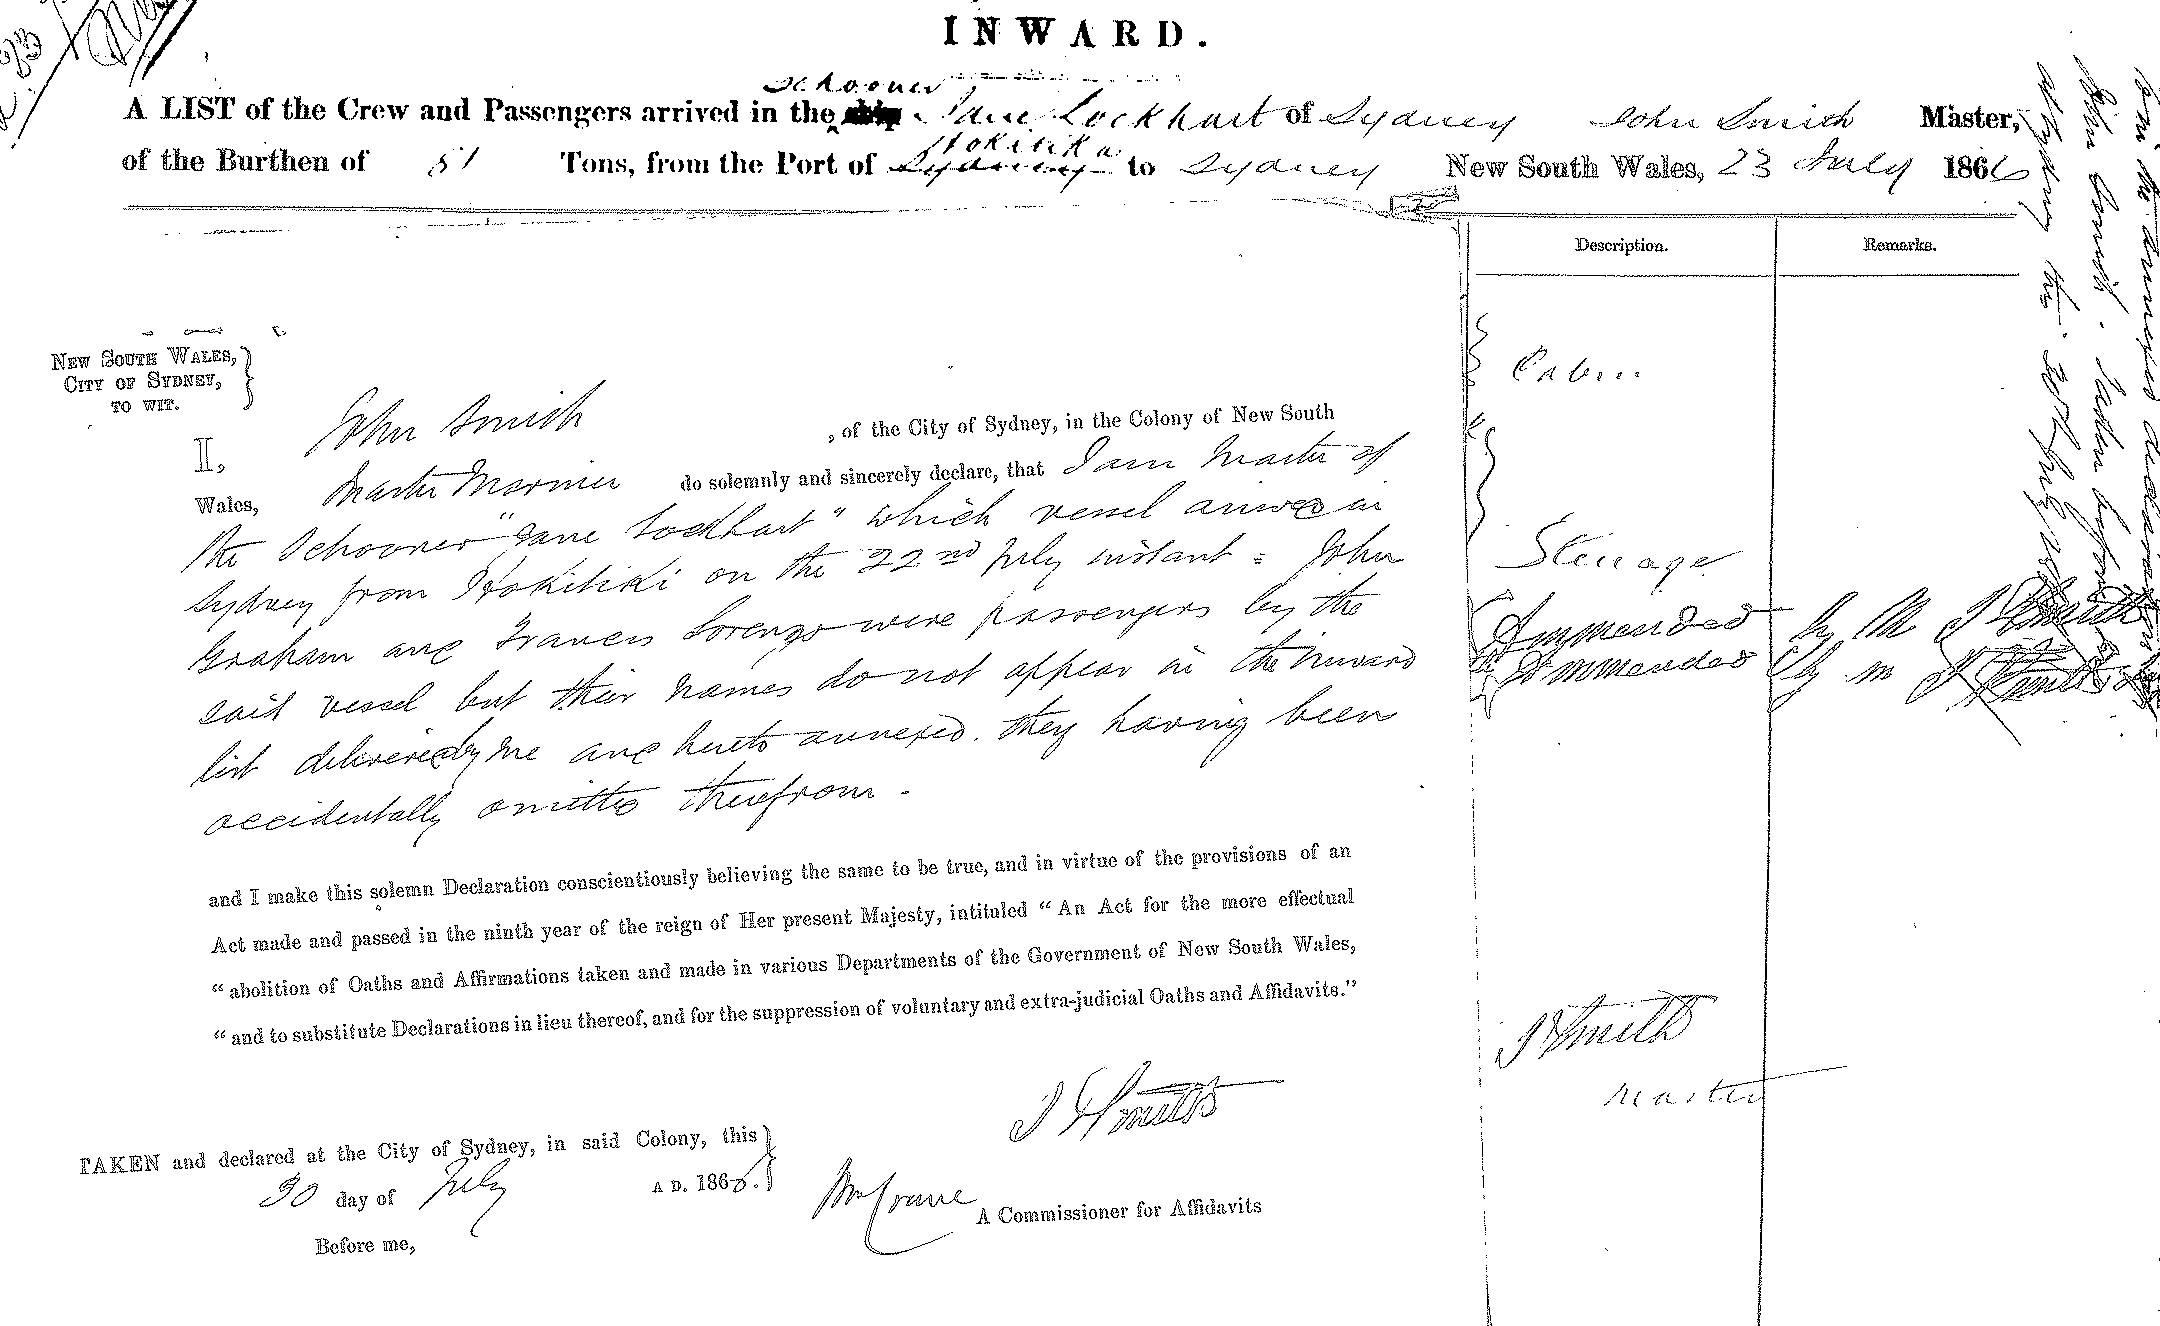 INWARD.
schooner
A LIST of the Crew and Passengers arrived in the ship Jane Lockhart of Sydney John Smith Master,
Hokitika
of the Burthen of 51 Tons, from the Port of Sydney to Sydney New South Wales, 23 July 1866
Description. Remarks.
NEW SOUTH WALES,
CITY OF SYDNEY,
TO WIT.
Cabin
I, John Smith , of the City of Sydney, in the Colony of New South
Wales, Master Mariner do solemnly and sincerely declare, that I am Master of
the Schooner "Jane Lockhart" which vessel arrived in
Sydney from Hokitiki on the 22nd July instant = John
Graham and Francis Lorenzo were passengers by the
said vessel but their names do not appear in the Inward
list delivered by me and hereto annexed. they having been
accidentally omitted therefrom.
Steerage
Ammended by M J Smith
Ammended by m J Smith
and I make this solemn Declaration conscientiously believing the same to be true, and in virtue of the provisions of an
Act made and passed in the ninth year of the reign of Her present Majesty, intituled "An Act for the more effectual
"abolition of Oaths and Affirmations taken and made in various Departments of the Government of New South Wales,
"and to substitute Declarations in lieu thereof, and for the suppression of voluntary and extra-judicial Oaths and Affidavits."
J Smith
Master
J Smith
TAKEN and declared at the City of Sydney, in said Colony, this
30 day of July A D. 1866.
Before me,
A Commissioner for Affidavits
the annexed declaration
John Smith. taken before
Sydney this 30th July